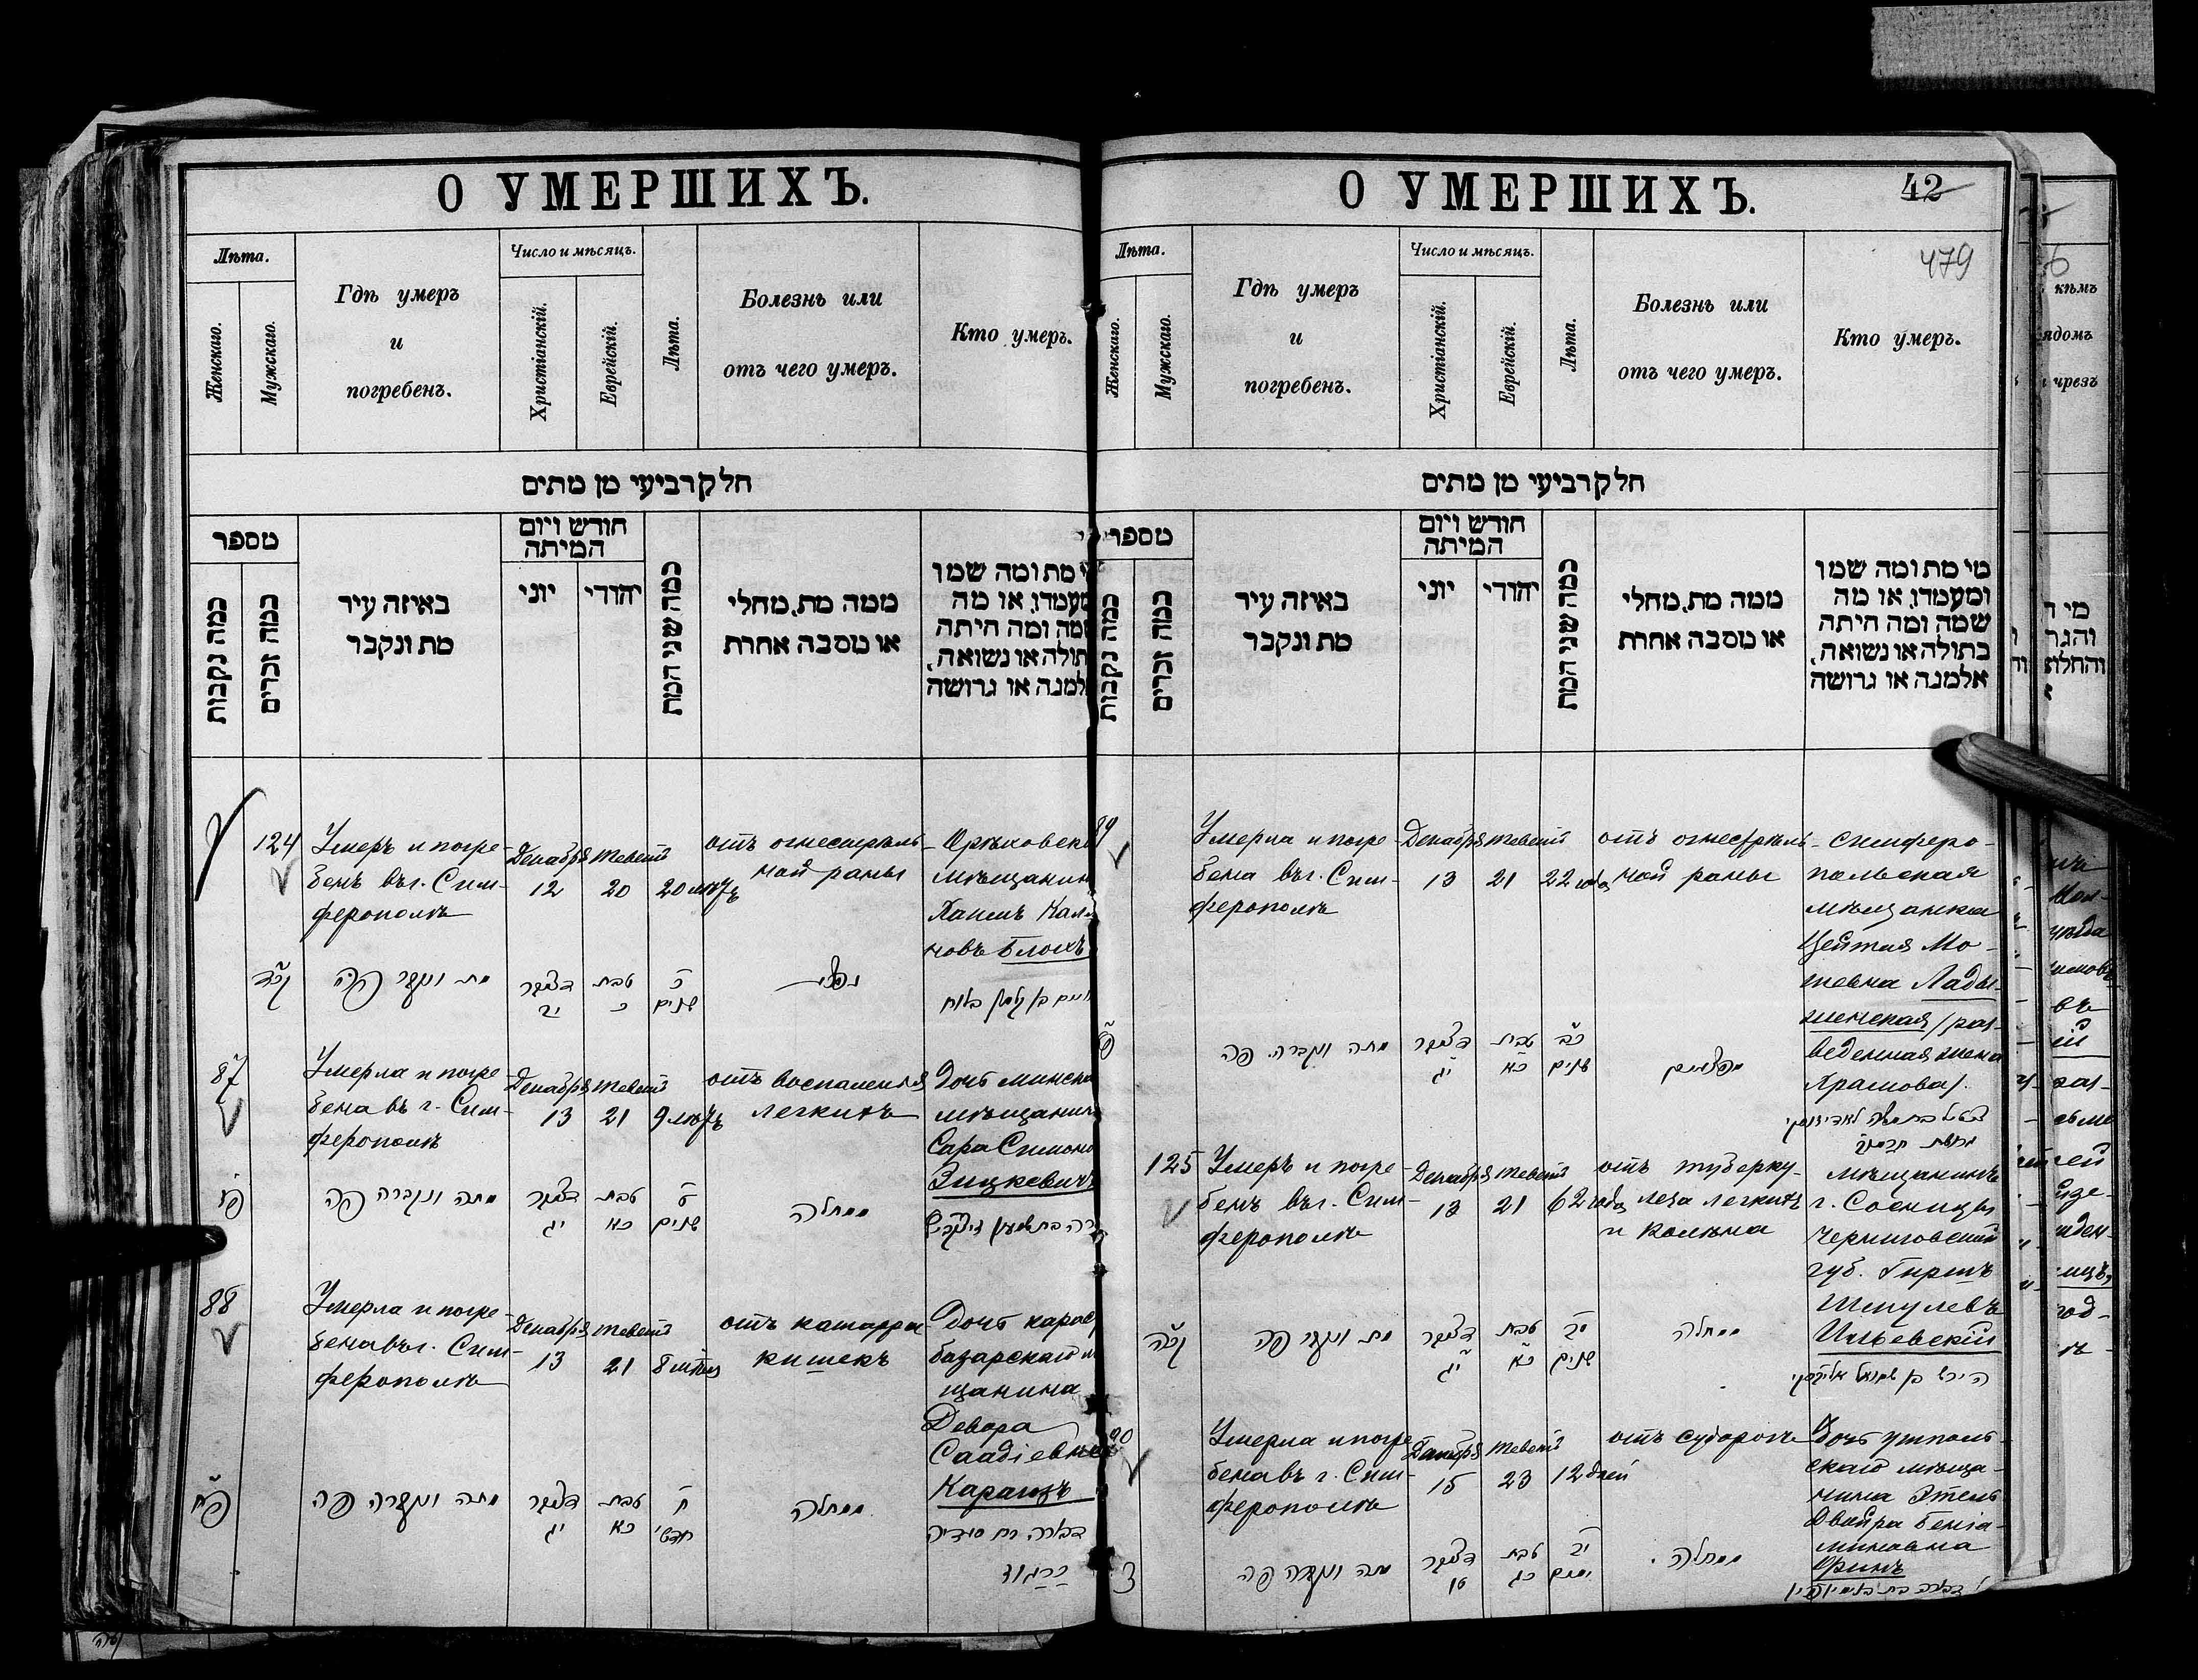 О УМЕРШИХЪ.
Лѣта.
Женскаго.
Мужскаго.
Гдѣ умеръ
и
погребенъ.
Число и мѣсяцъ.
Христіанскій.
Еврейскій.
Лѣта.
Болезнь или
отъ чего умеръ.
Кто умеръ.
חלק רביעי מן מתים
מספר
כמה נקבות
כמה זכרים
באיזה עיר
מת ונקבר
חודש ויום
המיתה
יוני
יהודי
כמה שני המת
ממה מת, מחלי
או מסבה אחרת
מת ומה שמו
או מה
ומה היתה
או נשואה,
או גרושה
124
Умеръ и погре-
бенъ въ г. Сим-
ферополѣ
Декабря
12
Теветъ
20
20 лѣтъ
отъ огнестрѣль-
ной раны
мѣщанин
Хаимъ
новъ Блохъ
קכד
מת ונקבר פה
דעצמבר
יב
טבת
כ
כ
שנים
חיים בן קלמן בלוח
87
Умерла и погре-
бена въ г. Сим-
ферополѣ
Декабря
13
Теветъ
21
9 лѣтъ
отъ воспаленія
легкихъ
Дочь минска
мѣщанин
Сара Симоно
Зицкевичъ
פז
מתה ונקברה פה
דעצמבר
יג
טבת
כא
ט
שנים
ממחלה
88
Умерла и погре-
бена въ г. Сим-
ферополѣ
Декабря
13
Теветъ
21
8 мѣсяц
отъ катарра
кишекъ
Дочь карасу
базарскаго м
щанина
Девора
Саадіевна
Карагозъ
פח
מתה ונקברה פה
דעצמבר
יג
טבת
כא
ח
חדשי
ממחלה
דבורה בת סעדיה
О УМЕРШИХЪ.
42
479
Лѣта.
Женскаго.
Мужскаго.
Гдѣ умеръ
и
погребенъ.
Число и мѣсяцъ.
Христіанскій.
Еврейскій.
Лѣта.
Болезнь или
отъ чего умеръ.
Кто умеръ.
חלק רביעי מן מתים
מספר
כמה נקבות
כמה זכרים
באיזה עיר
מת ונקבר
חודש ויום
המיתה
יוני
יהודי
כמה שני המת
ממה מת, מחלי
או מסבה אחרת
מי מת ומה שמו
ומעמדו, או מה
שמה ומה היתה
בתולה או נשואה,
אלמנה או גרושה
89
Умерла и погре-
бена въ г. Сим-
ферополѣ
Декабря
13
Теветъ
21
22 года
отъ огнестрѣль-
ной раны
Симферо-
польская
мѣщанка
Цейтля Мо-
шевна Лады-
женская /раз-
веденная жена
Храмова/.
פט
מתה ונקברה פה
דעצמבר
יג
טבת
כא
כב
שנים
125
Умеръ и погре-
бенъ въ г. Сим-
ферополѣ
Декабря
13
Теветъ
21
62 года
отъ туберку-
леза легкихъ
и колѣна
Мѣщанинъ
г. Сосницы
Черниговской
губ. Гиршъ
Шмулевъ
Ильевскій
קכה
מת ונקבר פה
דעצמבר
יג
טבת
כא
שנים
ממחלה
הירש בן שמואל
90
Умерла и погре
бена въ г. Сим-
ферополѣ
Декабря
15
Теветъ
23
12 дней
отъ судорогъ
Дочь
скаго мѣща-
нина Этель
Двойра Бенiа-
миновна
Финъ
צ
מתה ונקברה פה
דעצמבר
טו
טבת
כג
יב
ימים
ממחלה